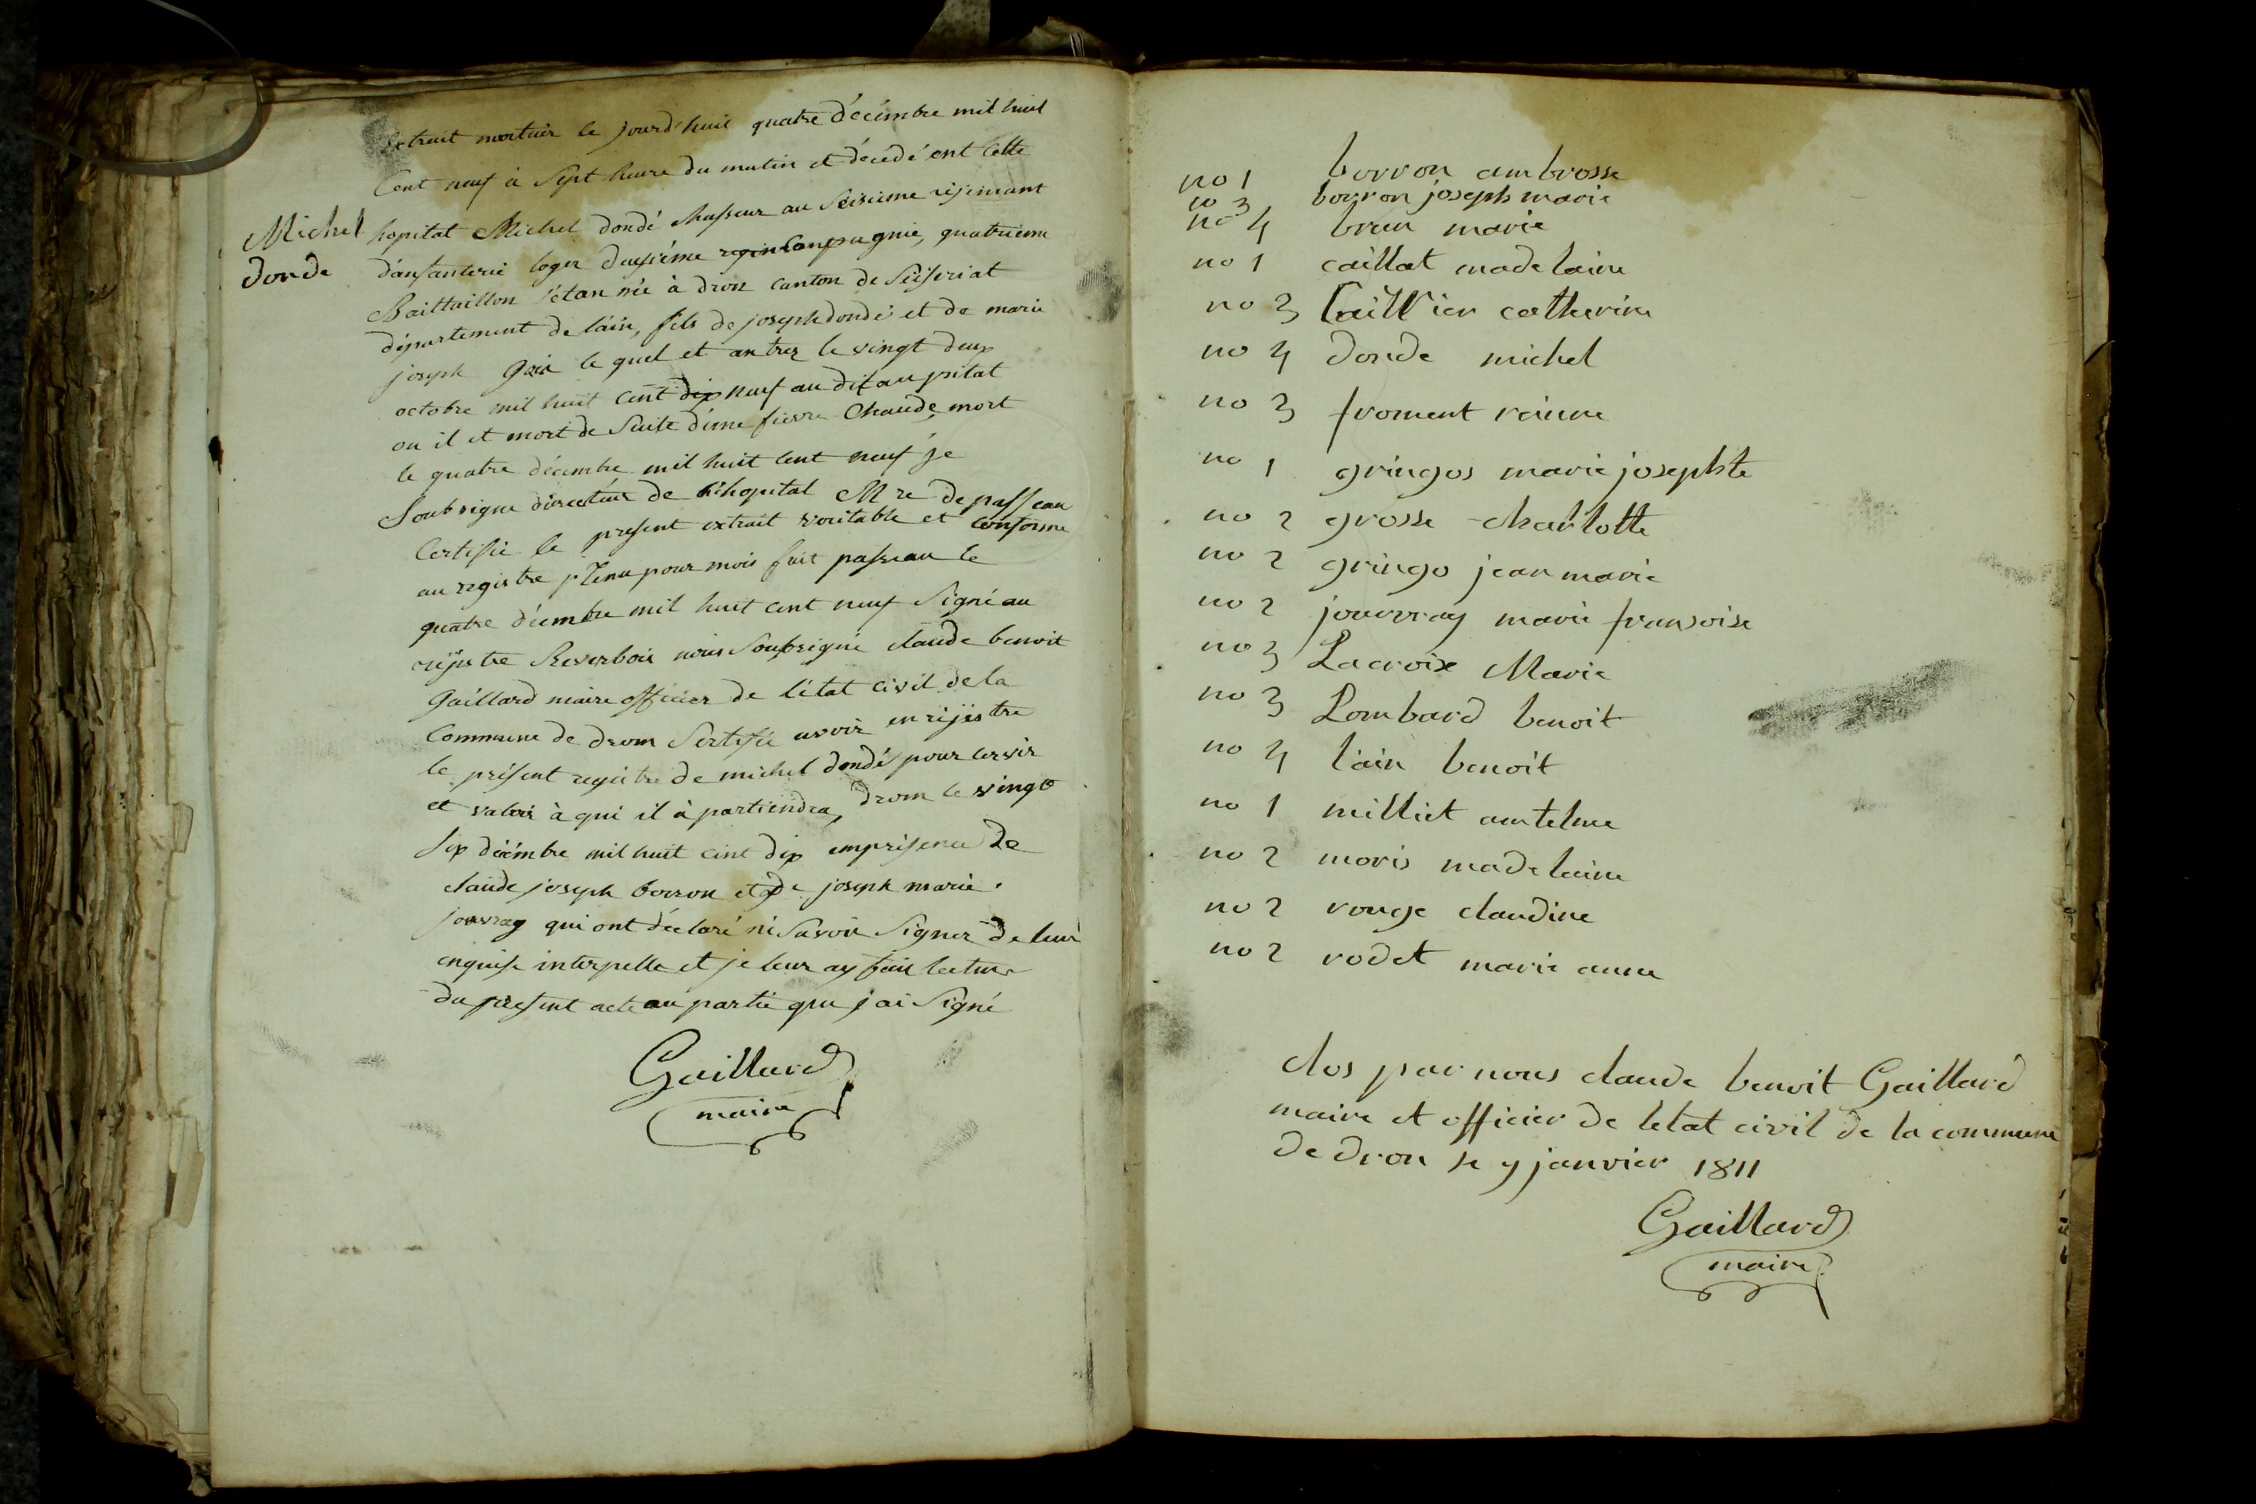 extrait mortuér le jourd'huit quatre décémbre mil huit
Cent neuf à Sept heure du matin et décédé ent cette
Michel
donde
hopital Michel dondé chasseur au Séisieme rejimant
d'anfanterie leger deusiéme Conpagnie, quatrieme
Baittaillon étan née à dron canton de Séiseriat
département de l'ain, fils de joseph dondé et de marie
joseph le quel et antrez le vingt deux
octobre mil huit cent neuf au dit au psital
ou il et mort de Suite d'une fievre Chaude, mort
le quatre décembre mil huit cent neuf je
Soubsigne directeur de l'hopital M re de passeau
Certifie le present extrait voritable et conforme
au registre Tenu pour mois fait passeau le
quatre décembre mil huit cent neuf Signé au
rejistre nous Soubsigné claude benoit
Gaillard maire officier de l'état civil de la
Commune de drom Sertifie avoir enrijistre
le présent registre de michel dondé pour servir
et valoir à qui il àpartiendra, drom le vingt
Six décémbre mil huit cent dix emprisence de
claude joseph borron et de joseph marie
jouvray qui ont déclaré ni Savoir Signer de leur
enquise interpelle et je leur ay fait lecture
du present acte au partie que j'ai Signé
Gaillard
maire
no 1 borron ambrosse
no 3 borron joseph marie
no 4 brun marie
no 1 caillat madelaine
no 3 Caillier catherine
no 4 donde michel
no 3 froment reinne
no 1 gringos marie josephte
no 2 grosse charlotte
no 2 gringo jean marie
no 2 jouvray marie fransoise
no 3 Lacroix Marie
no 3 Lombard benoit
no 4 l'ain benoit
no 1 milliet antelme
no 2 moris madelaine
no 2 rouge claudine
no 2 rodet marie anne
clos par nous claude benoit Gaillard
maire et officier de letat civil de la commune
de dron le 9 janvier 1811
Gaillard
maire